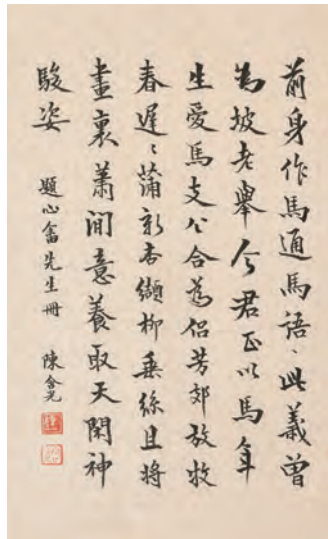 前身作馬通馬語〻此義曾
為坡老舉今君正以馬年
生愛馬支公合為侶芳郊放牧
春遲〻蒲新杏纈柳垂絲且將
畫裏蕭閒意養取天閑神
駿姿 題心畬先生冊 陳含光